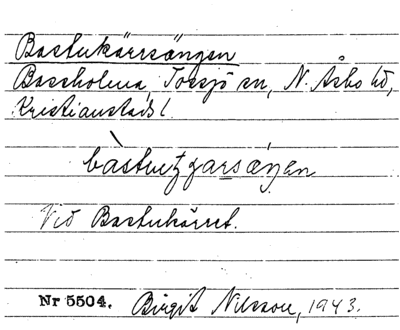 Bastukärrsängen
Bassholma, Tossjö sn, N. Åsbo hd,
Kristianstads l
Vid Bastukärret.
Nr 5504. Birgit Nilsson, 1943.